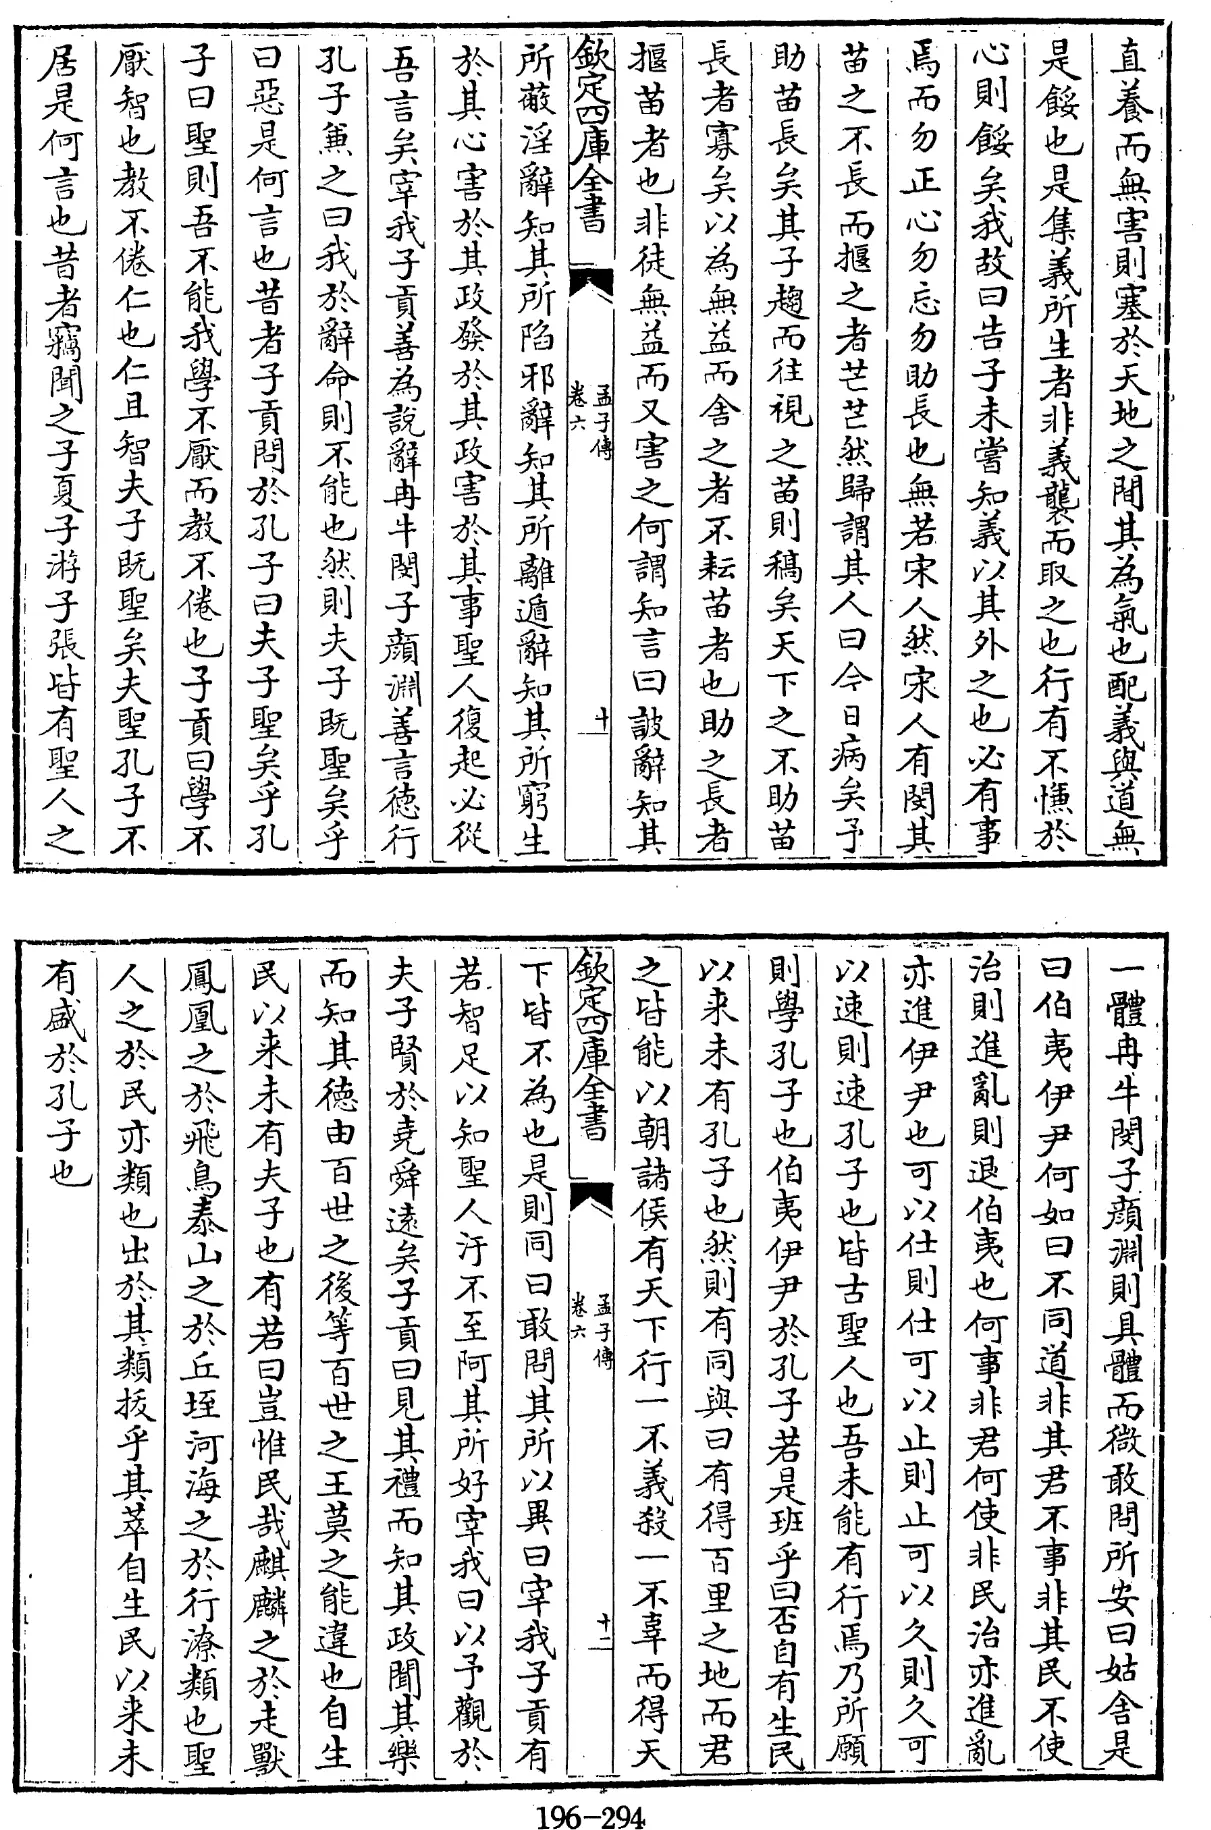 直養而無害則塞於天地之間其為氣也配義與道無
是餒也是集義所生者非義襲而取之也行有不慊於
心則餒矣我故曰告子未嘗知義以其外之也必有事
焉而勿正心勿忘勿助長也無若宋人然宋人有閔其
苗之不長而揠之者芒芒然歸謂其人曰今日病矣予
助苗長矣其子趨而往視之苗則稿矣天下之不助苗
長者寡矣以為無益而舍之者不耘苗者也助之長者
揠苗者也非徒無益而又害之何謂知言曰詖辭知其
欽定四庫全書
孟子傳
卷六
十一
所蔽淫辭知其所陷邪辭知其所離遁辭知其所窮生
於其心害於其政發於其政害於其事聖人復起必從
吾言矣宰我子貢善為說辭冉牛閔子顔淵善言徳行
孔子兼之曰我於辭命則不能也然則夫子既聖矣乎
曰惡是何言也昔者子貢問於孔子曰夫子聖矣乎孔
子曰聖則吾不能我學不厭而教不倦也子貢曰學不
厭智也教不倦仁也仁且智夫子既聖矣夫聖孔子不
居是何言也昔者竊聞之子夏子游子張皆有聖人之
一體冉牛閔子顔淵則具體而微敢問所安曰姑舍是
曰伯夷伊尹何如曰不同道非其君不事非其民不使
治則進亂則退伯夷也何事非君何使非民治亦進亂
亦進伊尹也可以仕則仕可以止則止可以久則久可
以速則速孔子也皆古聖人也吾未能有行焉乃所願
則學孔子也伯夷伊尹於孔子若是班乎曰否自有生民
以来未有孔子也然則有同與曰有得百里之地而君
之皆能以朝諸侯有天下行一不義殺一不辜而得天
欽定四庫全書
孟子傳
卷六
十二
下皆不為也是則同曰敢問其所以異曰宰我子貢有
若智足以知聖人汙不至阿其所好宰我曰以予觀於
夫子賢於堯舜遠矣子貢曰見其禮而知其政聞其樂
而知其徳由百世之後等百世之王莫之能違也自生
民以来未有夫子也有若曰豈惟民哉麒麟之於走獸
鳳凰之於飛鳥泰山之於丘垤河海之於行潦類也聖
人之於民亦類也出於其類拔乎其萃自生民以来未
有盛於孔子也
196-294